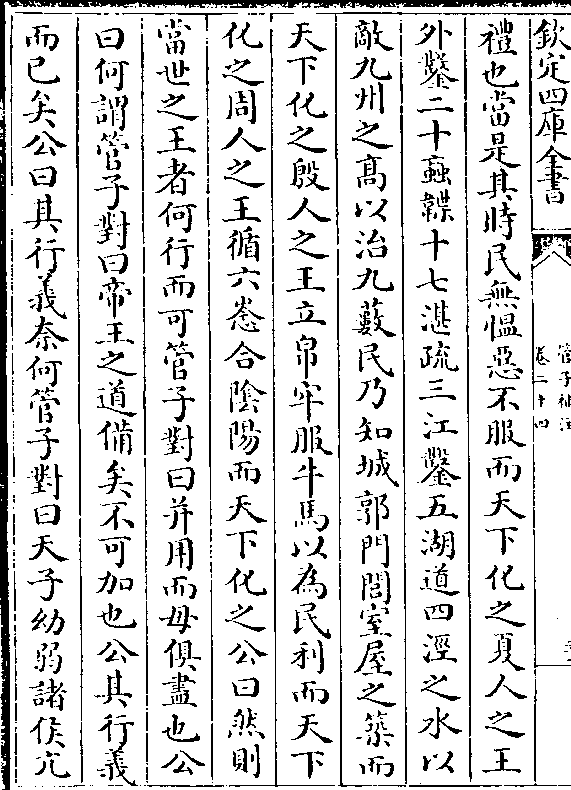 欽定四庫全書
管子補注
卷二十四
禮也當是其時民無慍惡不服而天下化之夏人之王
外鑿二十䖟韘十七湛疏三江鑿五湖道四涇之水以
敵九州之髙以治九藪民乃知城郭門閭室屋之築而
天下化之殷人之王立帛牢服牛馬以為民利而天下
化之周人之王循六惢合隂陽而天下化之公曰然則
當世之王者何行而可管子對曰并用而毋俱盡也公
曰何謂管子對曰帝王之道備矣不可加也公其行義
而已矣公曰其行義奈何管子對曰天子幼弱諸侯亢